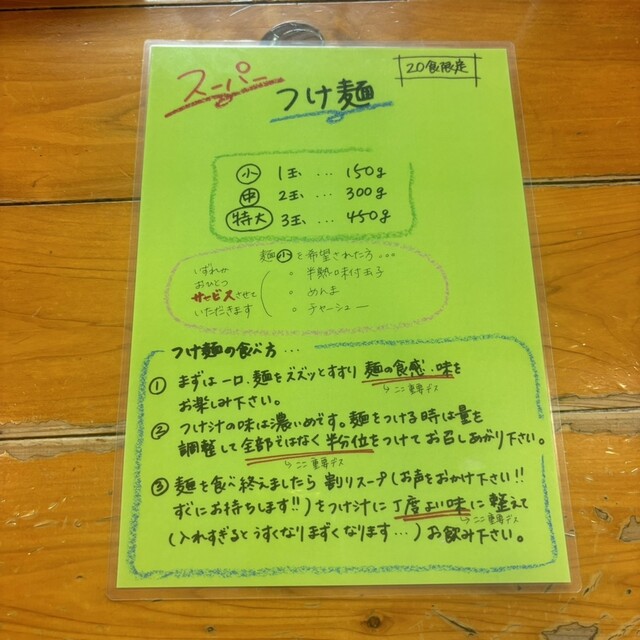 スーパー
20食限定
つけ麺
小 1玉 … 150g
中 2玉 … 300g
特大 3玉 … 450g
麺小を希望された方…
いずれか
おひとつ
サービスさせて
いただきます
・半熟味付玉子
・めんま
・チャーシュー
つけ麺の食べ方…
① まずは一口、麺をズズッとすすり 麺の食感・味を
↳ここ重要デス
お楽しみ下さい。
② つけ汁の味は濃いめです。麺をつける時は量を
調整して全部ではなく半分位をつけてお召しあがり下さい。
↳ここ重要デス
③ 麺を食べ終えましたら 割りスープ(お声をおかけ下さい!!
すぐにお持ちします!!)をつけ汁に丁度よい味に整えて
↳ここ重要デス
(入れすぎるとうすくなりまずくなります…)お飲み下さい。